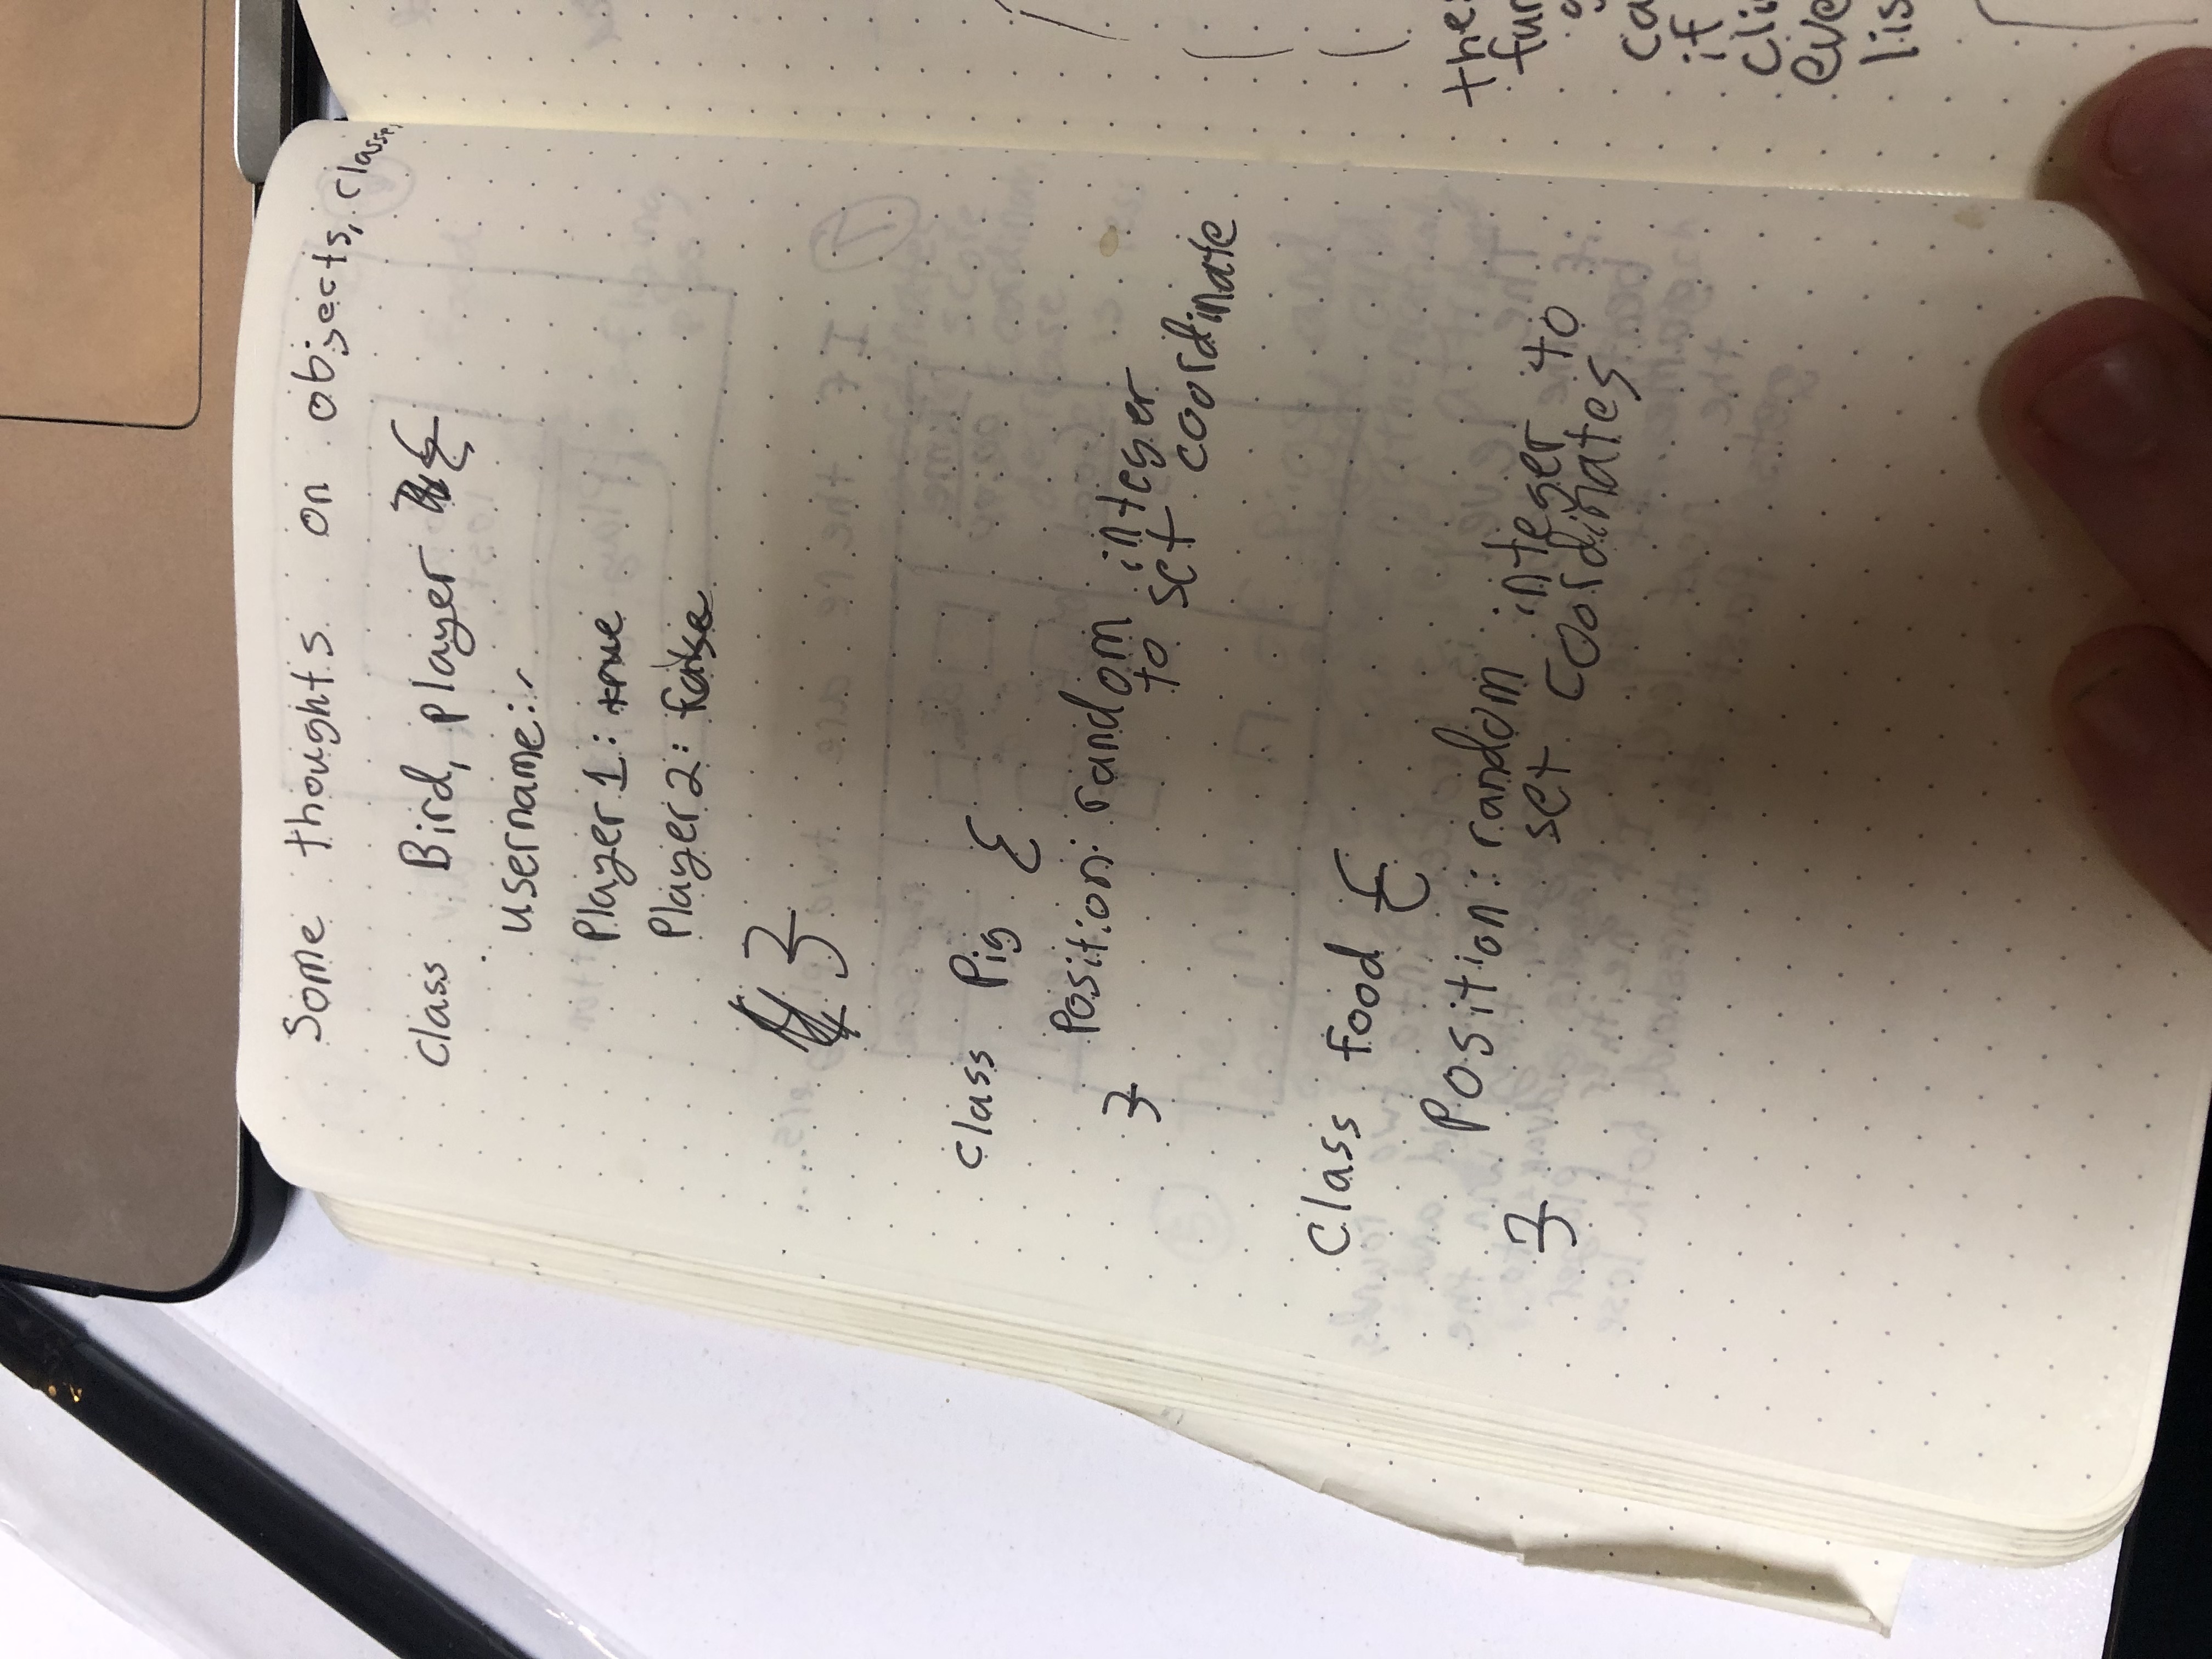 Some thoughts on objects, classes
class Bird, player {
username:
Player 1: true
Player 2: false
}
class Pig {
Position: random integer
to set coordinate
}
Class food {
Position: random integer to
set coordinates
}
the
fur
ca
if
cli
eve
lis